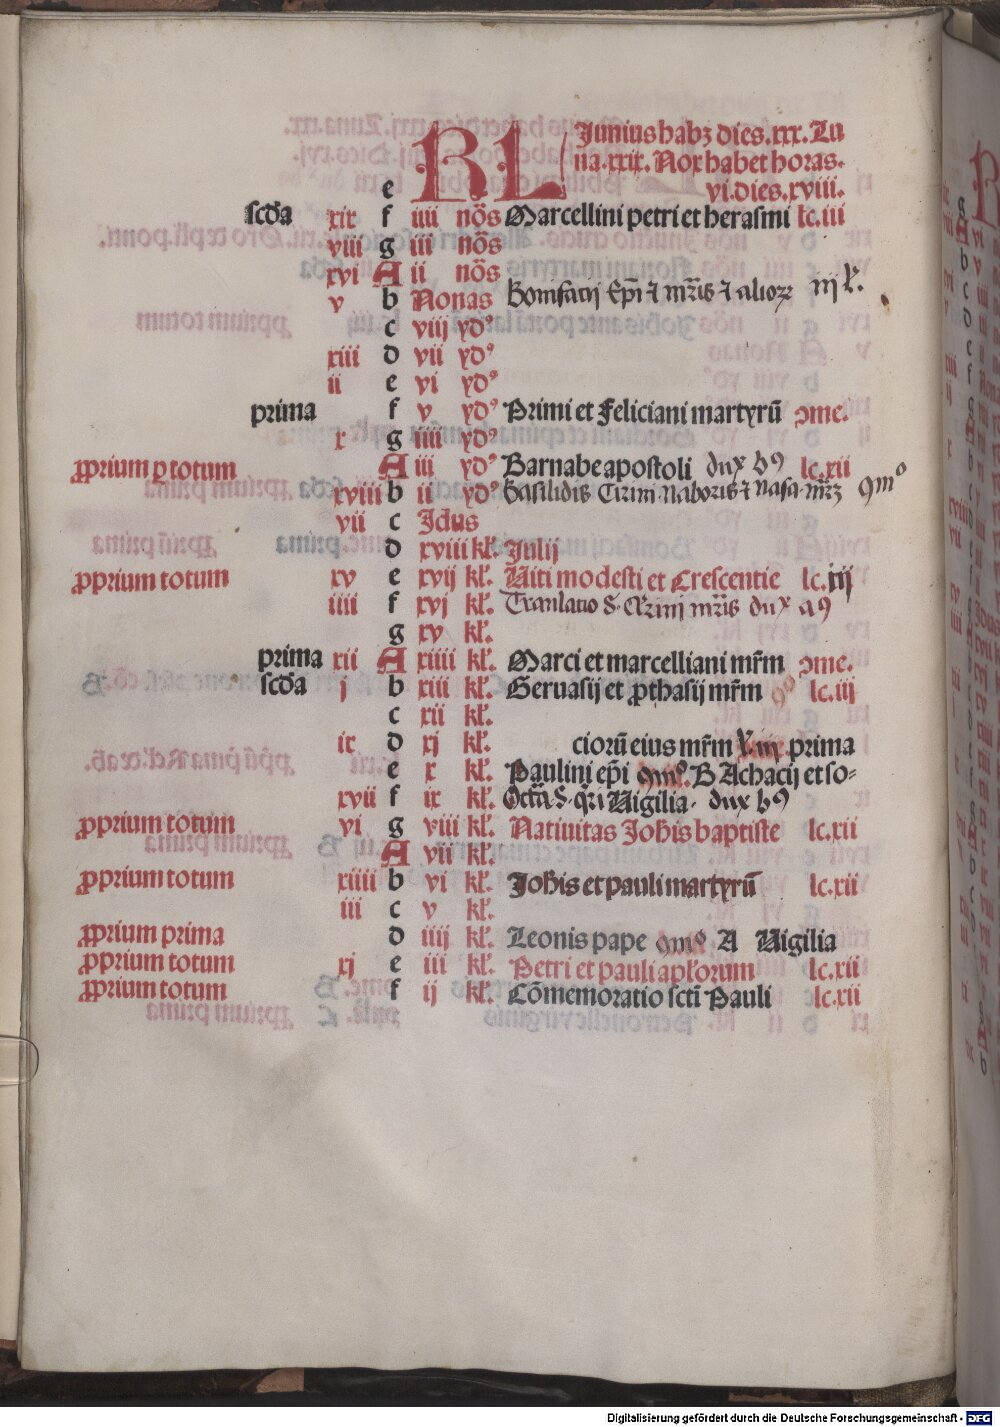 KL Junius habz dies. xxx. Lu
na. xxix. Nox habet horas.
e vi. dies. xviii.
scda xix f iiii nōs Marcellini petri et herasmi lc. iii
viii g iii nōs
xvi A ii nōs
v b Nonas Bonifacij Epi ⁊ mris ⁊ alioꝝ iij l.
c viij ydꝰ
xiii d vii ydꝰ
ii e vi ydꝰ
prima f v ydꝰ Primi et Feliciani martyrū ɔme.
x g iiii ydꝰ
ꝓprium ꝑ totum A iii ydꝰ Barnabe apostoli dux b9 lc. xii
xviii b ii ydꝰ Basilidis Cirini Naboris ⁊ Nasa. mrz 9mo
vii c Idus
d xviii kl. Julij
ꝓprium totum xv e xvij kl. Viti modesti et Crescentie lc. xij
iiii f xvj kl. Translatio S. Q̄rini mris dux a9
g xv kl.
prima xii A xiiii kl. Marci et marcelliani mr̄m ɔme.
scda j b xiii kl. Geruasij et ꝓthasij mr̄m 9o lc. iij
c xii kl.
ix d xj kl. ciorū eius mr̄m l. iij. prima
e x kl. Paulini ep̄i 9mo. B Achacij et so-
xvii f ix kl. Octa S. q̄ri Vigilia. dux b9
ꝓprium totum vi g viii kl. Natiuitas Joh̄is baptiste lc. xii
A vii kl.
ꝓprium totum xiiii b vi kl. Joh̄is et pauli martyrū lc. xii
iii c v kl.
ꝓprium prima d iiij kl. Leonis pape 9mo A Vigilia
ꝓprium totum xj e iii kl. Petri et pauli apl̄orum lc. xii
ꝓprium totum f ij kl. Cōmemoratio sct̄i Pauli lc. xii
Digitalisierung gefördert durch die Deutsche Forschungsgemeinschaft - DFG